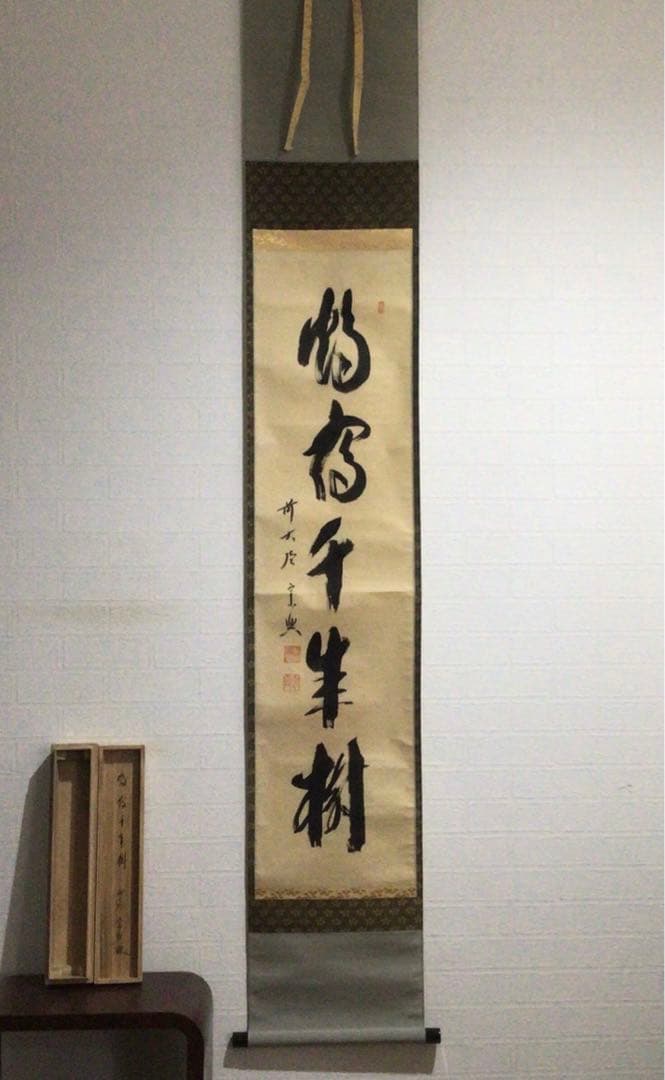 鶴宿千年樹
前大徳 宗興
鶴宿千年樹